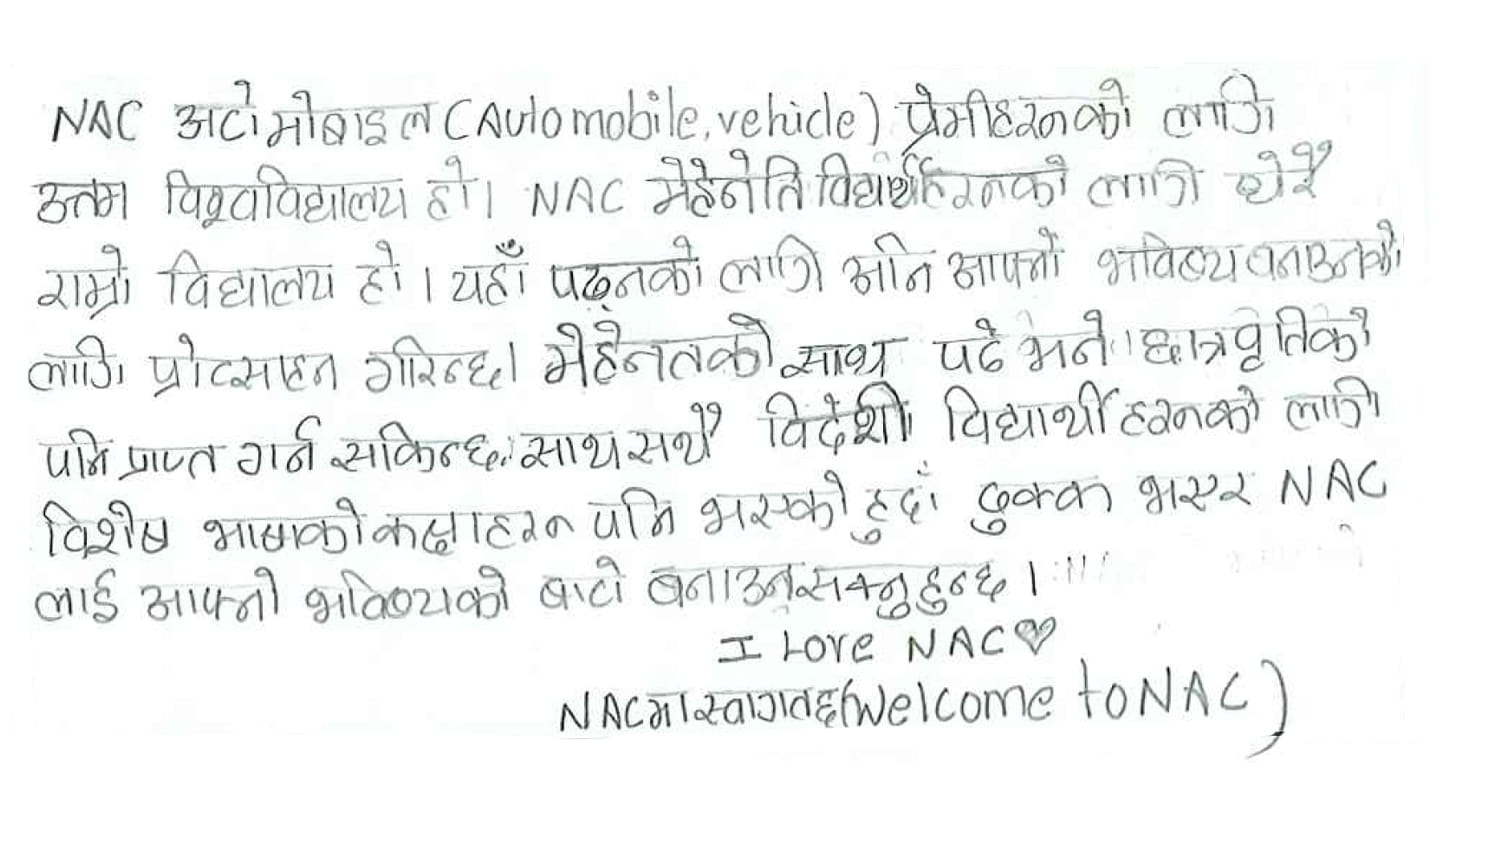 NAC अटोमोबाइल (Automobile, vehicle) प्रेमीहरूको लागि
उत्तम विश्वविद्यालय हो। NAC मेहेनेति विद्यार्थीहरूको लागि धेरै
राम्रो विद्यालय हो। यहाँ पढ्नको लागि अनि आफ्नो भविष्य बनाउनको
लागि प्रोत्साहन गरिन्छ। मेहेनतको साथ पढे भने छात्रवृतिको
पनि प्राप्त गर्न सकिन्छ। साथ सथै विदेशी विद्यार्थीहरूको लागि
विशेष भाषाको कक्षाहरू पनि भएको हुदाँ ढुक्क भएर NAC
लाई आफ्नो भविष्यको बाटो बनाउन सक्नुहुन्छ।
I Love NAC♡
NACमा स्वागतछ(Welcome to NAC)